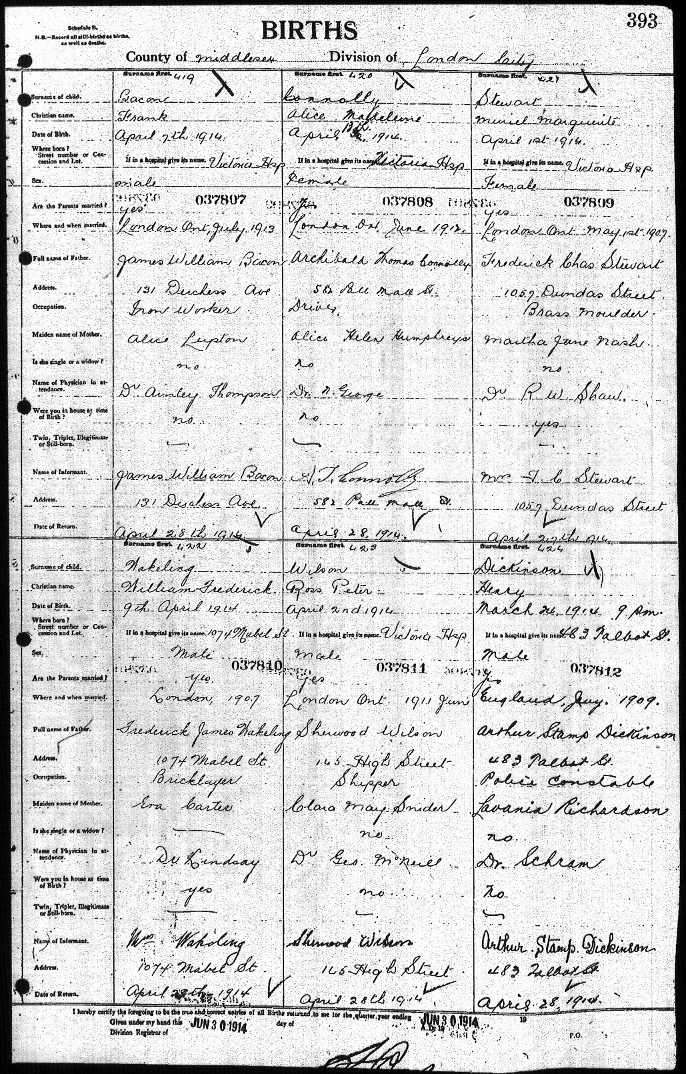 Schedule B.
N.B.—Record all still-births as births,
as well as deaths.
BIRTHS
393
County of Middlesex Division of London City
Surname first. 419 Surname first. 420 Surname first. 421
Surname of child. Bacon Connolly Stewart
Christian name. Frank Alice Madeleine Muriel Marguerite
Date of Birth. April 7th 1914. April 1914. April 1st 1914.
Where born?
Street number or Concession and Lot. If in a hospital give its name. Victoria Hsp If in a hospital give its name. Victoria Hsp If in a hospital give its name. Victoria Hsp
Sex. male Female Female
037807 037808 037809
Are the Parents married? yes yes
Where and when married. London Ont, July, 1913 London Ont June 1912. London Ont May 1st 1907.
Full name of Father. James William Bacon Archibald Thomas Connolly Frederick Chas Stewart
Address. 131 Duchess Ave 582 Pall Mall St. 1057 Dundas Street
Occupation. Iron Worker Driver Brass Moulder.
Maiden name of Mother. Alice Lupton Alice Helen Humphreys Martha Jane Nash.
Is she single or a widow? no no no
Name of Physician in attendance. Dr Ainsley Thompson Dr. N. George Dr R. W. Shaw.
Were you in house at time of Birth? no no yes
Twin, Triplet, Illegitimate or Still-born. — — —
Name of Informant. James William Bacon A. T. Connolly Mrs F. C Stewart
Address. 131 Duchess Ave 582 Pall Mall St. 1057 Dundas Street
Date of Return. April 28th 1914 April 28, 1914. April 27th 1914.
Surname first. 422 Surname first. 423 Surname first. 424
Surname of child. Wakeling Wilson Dickinson
Christian name. William Frederick Ross Peter Henry
Date of Birth. 9th April 1914 April 2nd 1914 March 24, 1914 9 p.m.
Where born?
Street number or Concession and Lot. If in a hospital give its name. 1074 Mabel St If in a hospital give its name. Victoria Hsp If in a hospital give its name. 483 Talbot St.
Sex. Male male Male
037810 037811 037812
Are the Parents married? yes yes yes
Where and when married. London, 1907 London Ont 1911 Jun England Jany. 1909.
Full name of Father. Frederick James Wakeling Sherwood Wilson Arthur Stamp Dickinson
Address. 1074 Mabel St 145 High Street 483 Talbot St.
Occupation. Bricklayer Shipper Police Constable
Maiden name of Mother. Eva Carter Clara May Snider Lavania Richardson
Is she single or a widow? — no no
Name of Physician in attendance. Dr Lindsay Dr Geo. McNeill Dr. Schram
Were you in house at time of Birth? yes no no
Twin, Triplet, Illegitimate or Still-born. — — —
Name of Informant. Mrs Wakeling Sherwood Wilson Arthur. Stamp. Dickinson
Address. 1074 Mabel St 145 High Street 483 Talbot St
Date of Return. April 28th 1914 April 28th 1914 April 28, 1914.
I hereby certify the foregoing to be the true and correct entries of all Births returned to me for the quarter, year ending JUN 30 1914
Given under my hand this JUN 30 1914 day of A.D. 19 19
Division Registrar of P.O.